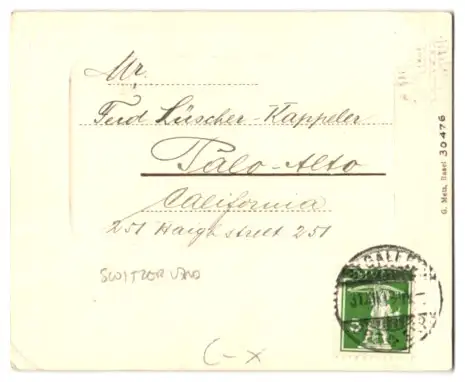 Mr.
Ferd Lüscher-Kappeler
Palo-Alto
California
251 Haigh street 251
SWITZERLAND
C-X
G. Metz, Basel 30476
5